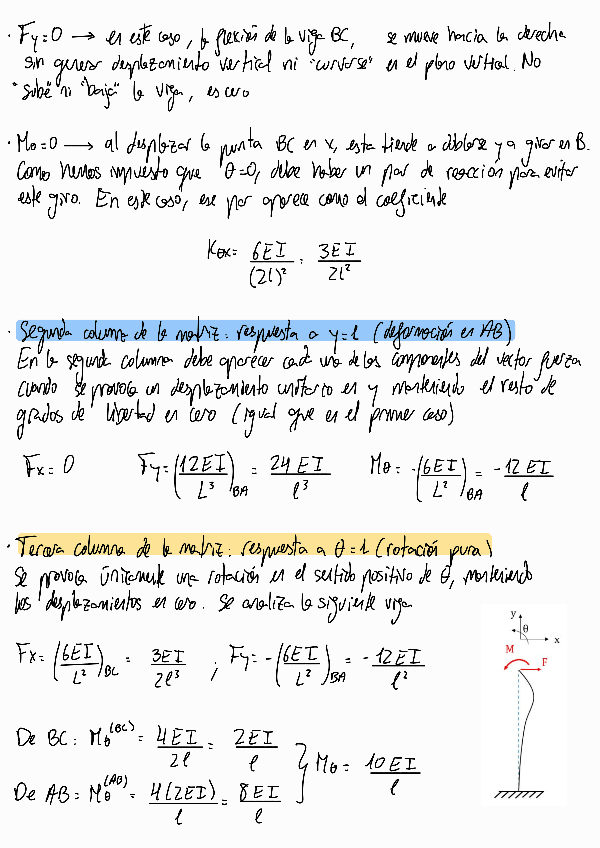 · Fy=0 → en este caso, la flexión de la viga BC, se mueve hacia la derecha
sin generar desplazamiento vertical ni "curvarse" en el plano vertical. No
"sube" ni "baja" la viga, es cero
· Mθ=0 → al desplazar la punta BC en x, esta tiende a doblarse y a girar en B.
Como hemos impuesto que θ=0, debe haber un par de reacción para evitar
este giro. En este caso, ese par aparece como el coeficiente
Kθx= 6EI/(2l)² = 3EI/2l²
· Segunda columna de la matriz: respuesta a y=1 (deformación en AB)
En la segunda columna debe aparecer cada uno de los componentes del vector fuerza
cuando se provoca un desplazamiento unitario en y manteniendo el resto de
grados de libertad en cero (igual que en el primer caso)
Fx= 0 Fy=(12EI/L³)BA = 24EI/l³ Mθ= -(6EI/L²)BA = -12EI/l
· Tercera columna de la matriz: respuesta a θ=1 (rotación pura)
Se provoca únicamente una rotación en el sentido positivo de θ, manteniendo
los desplazamientos en cero. Se analiza la siguiente viga
Fx=(6EI/L²)BC = 3EI/2l³ ; Fy= -(6EI/L²)BA = -12EI/l²
y
θ
x
M
F
De BC: Mθ^(BC) = 4EI/2l = 2EI/l
De AB: Mθ^(AB) = 4(2EI)/l = 8EI/l } Mθ= 10EI/l